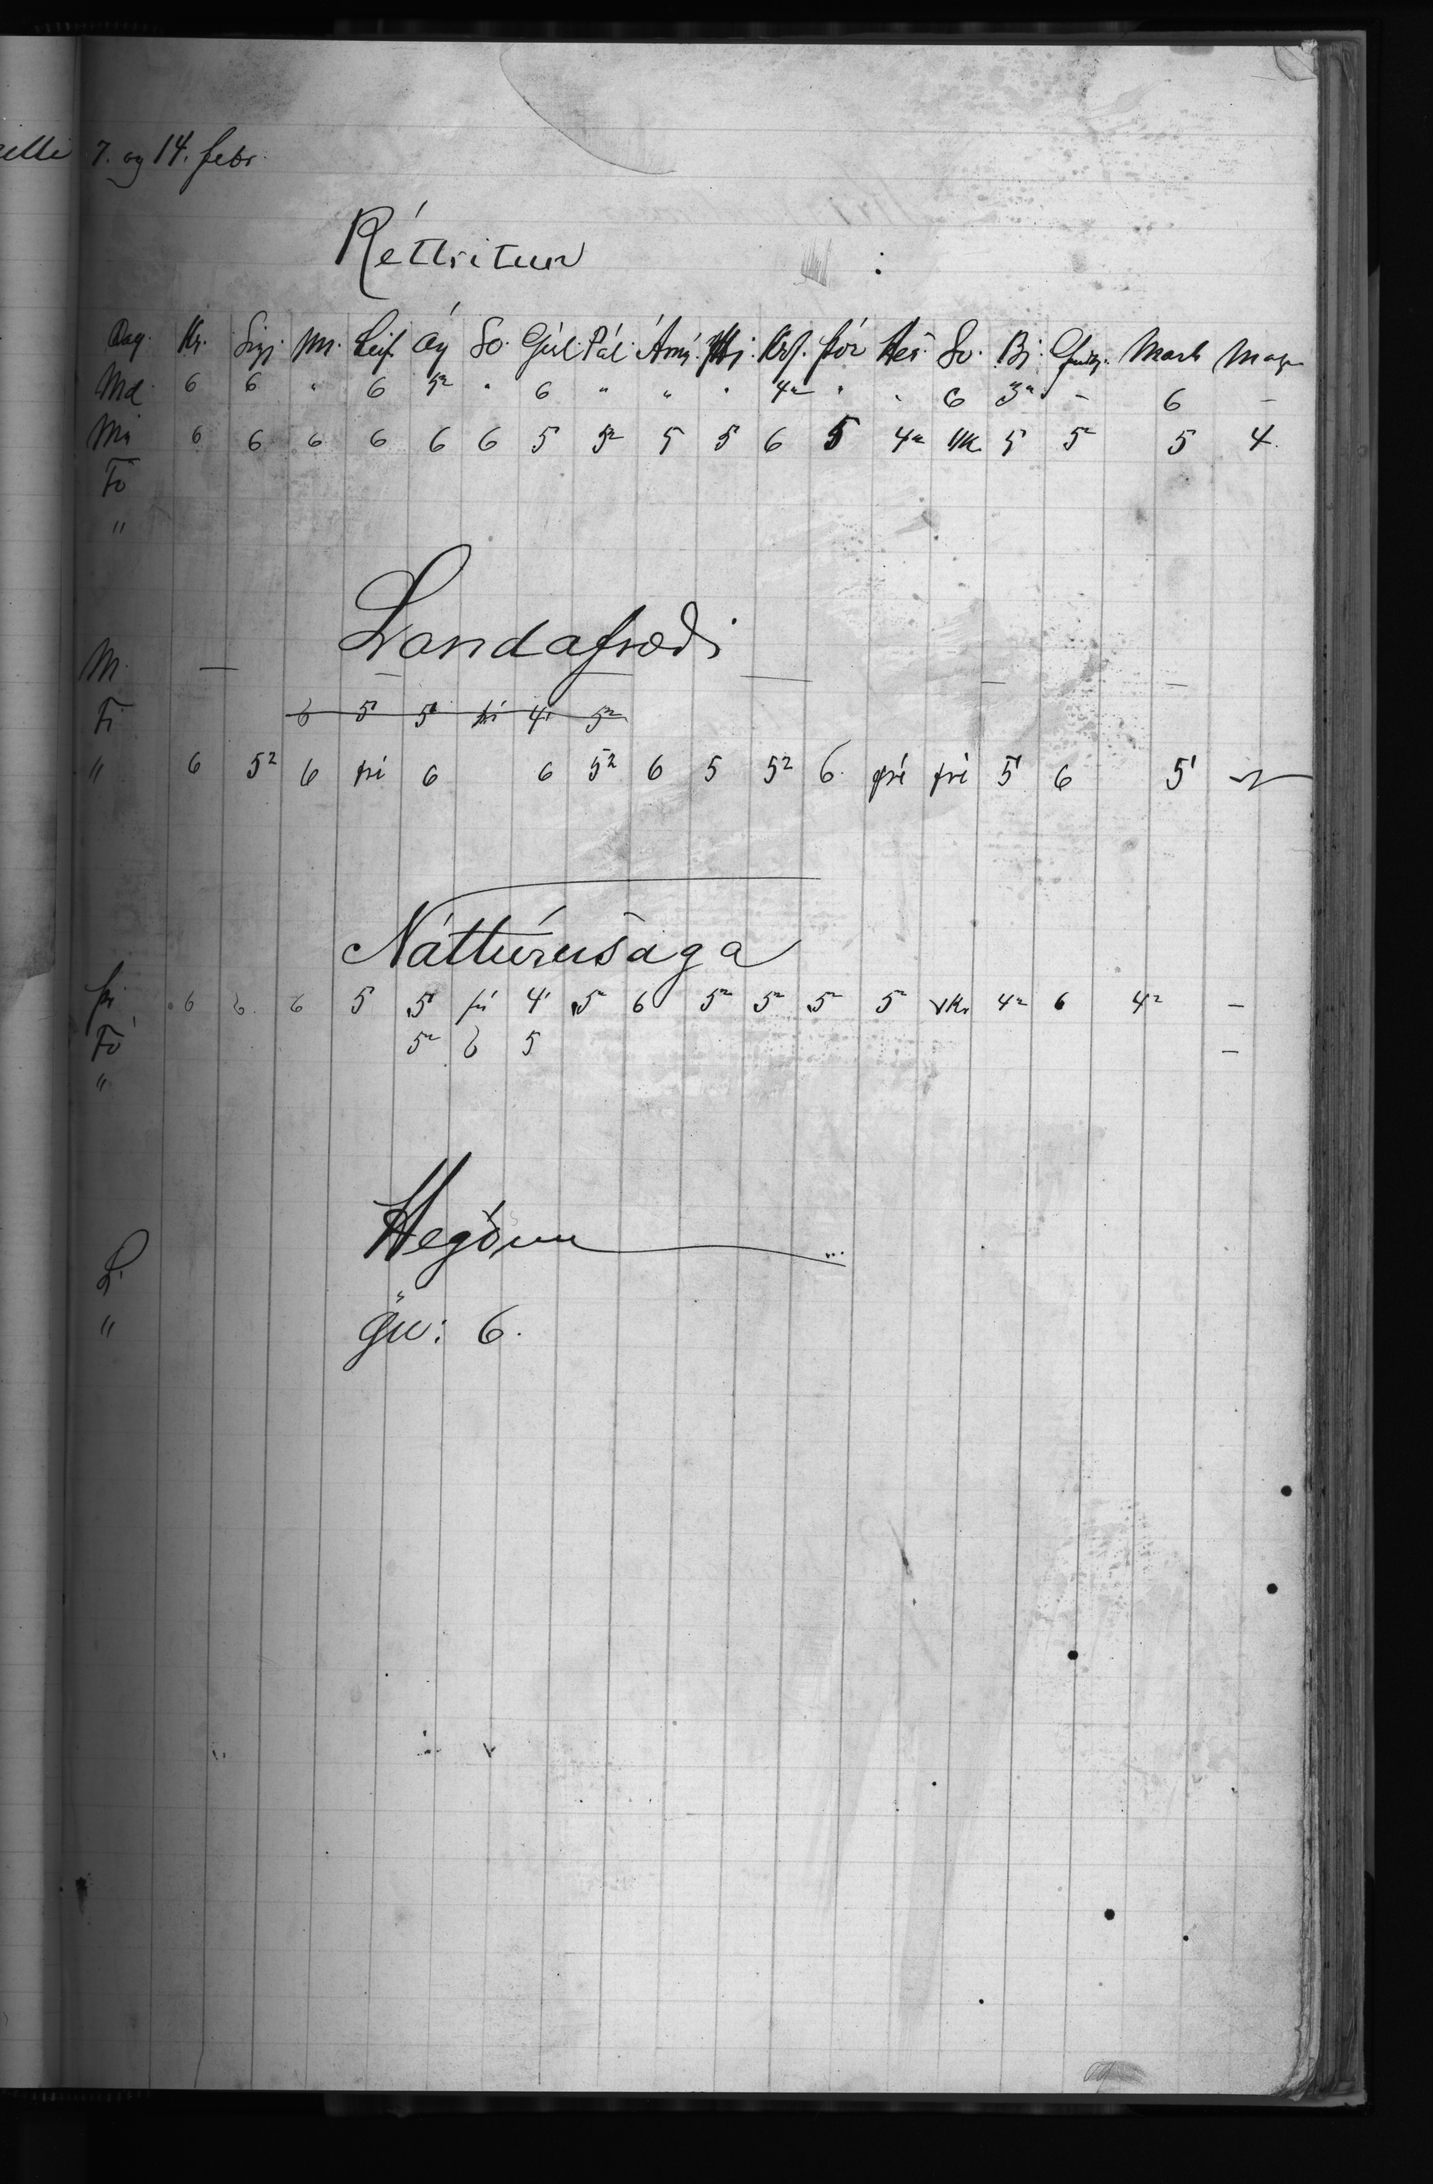 7. og 14. febr.
Réttritun
Dag. Kr. Sigj. M. Leif. Ág So. Gúl. Pál. Árný. Hj. Krf. Þór Hes. Sv. Bj. Mark Magn
Md 6 6 " 6 5² " 6 " " " 4² " " 6 3² - 6 -
Mi 6 6 6 6 6 6 5 5² 5 5 6 5 4² 5 5² 5 4.
Fö
"
Landafræði
M. — — — — — —
Fi 6 5¹ 5¹ frí 4¹ 5²
" 6 5² 6 frí 6 6 5² 6 5 5² 6. frí frí 5¹ 6 5¹
Náttúrusaga
Þri 6 6 6 5 5¹ frí 4¹ 5² 6 5² 5² 5² 5² 4² 6 4² -
Fö 5² 6 5 -
"
Hegðun
L.
" 6.